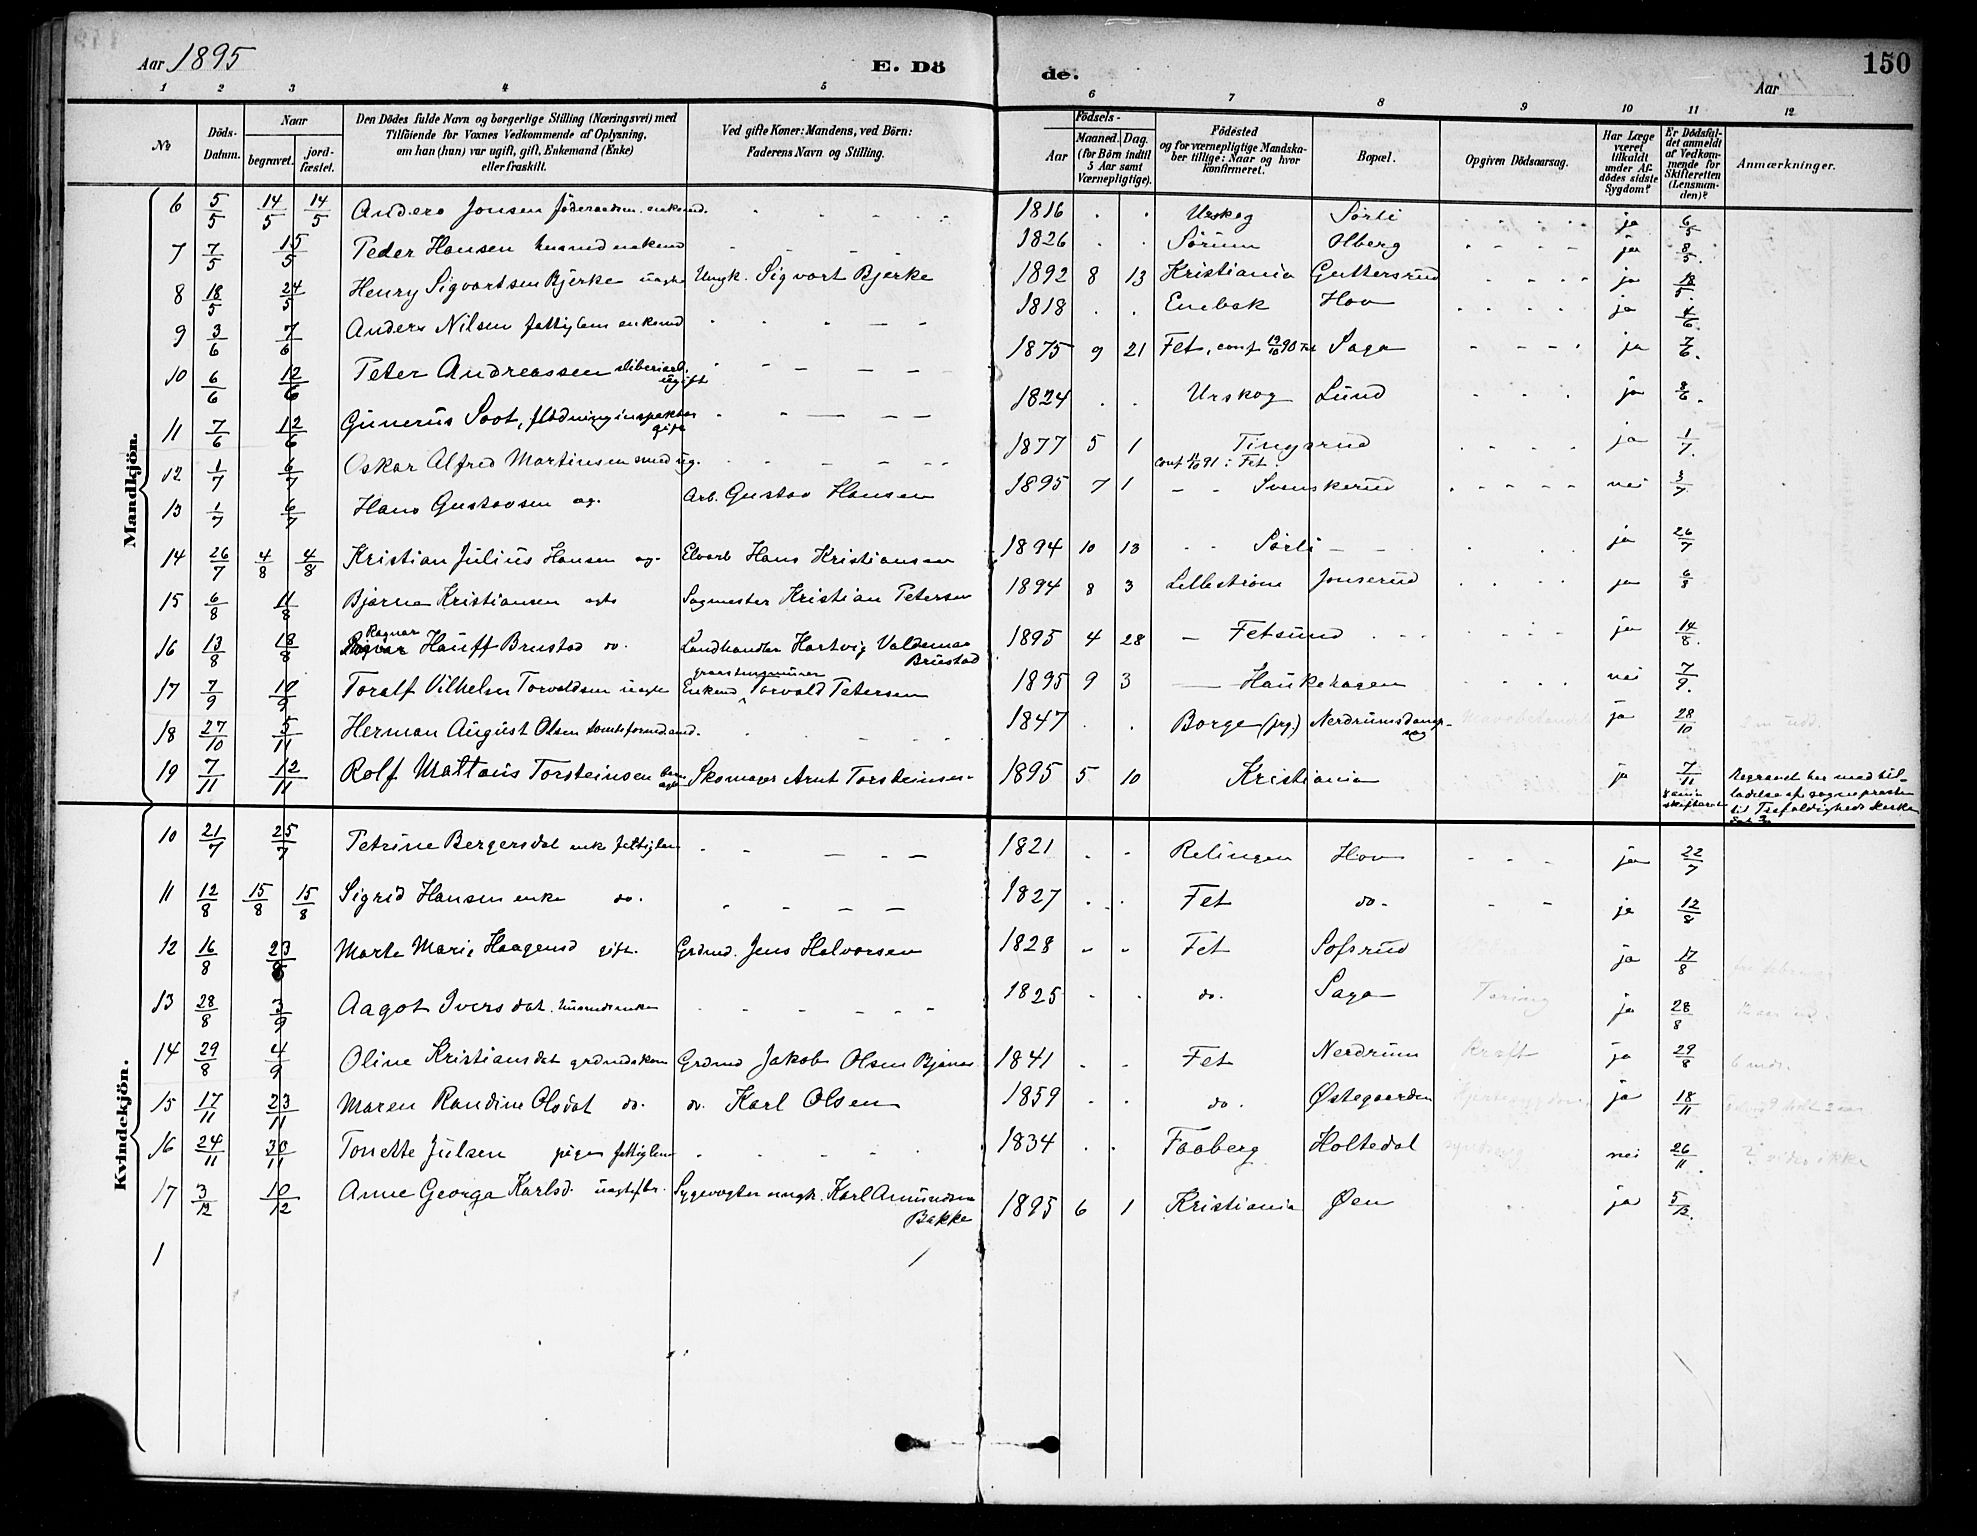 Aar 1895 E. Dö de. Aar 150
1 2 3 4 5 6 7 8 9 10 11 12
№ Döds-Datum. Naar begravet. jord-fæstet. Den Dödes fulde Navn og borgerlige Stilling (Næringsvei) med Tilföiende for Voxnes Vedkommende af Oplysning, om han (hun) var ugift, gift, Enkemand (Enke) eller fraskilt. Ved gifte Koner: Mandens, ved Börn: Faderens Navn og Stilling. Födsels- Aar Maaned. Dag. (for Börn indtil 5 Aar samt Værnepligtige). Födested og for værnepligtige Mandskaber tillige: Naar og hvor konfirmeret. Bopæl. Opgiven Dödsaarsag. Har Læge været tilkaldt under Afdödes sidste Sygdom? Er Dödsfaldet anmeldt af Vedkommende for Skifteretten (Lensmanden)? Anmærkninger.
Mandkjön.
6 5/5 14/5 14/5 Anders Jonsen föderaadsm. enkemd. 1816 Urskog Sörli ja 6/5
7 7/5 15/5 Peder Hansen husmd enkemd 1826 Sörum Olberg ja 8/5.
8 18/5 24/5 Henry Sigvartsen Bjerke uægte Ungk. Sigvart Bjerke 1892 8 13 Kristiania Guttersrud ja 18/5.
9 3/6 7/6 Anders Nilsen fattiglem enkemd 1818 Enebak Hov ja 4/6.
10 6/6 12/6 Peter Andreassen sliberiarb. ugift 1875 9 21 Fet, conf 12/10 90 Fet Saga ja 7/6.
11 7/6 12/6 Gunerus Soot, flödninginspektør gift 1824 Urskog Lund ja 8/6.
12 1/7 6/7 Oskar Alfred Martinsen smed ug. 1877 5 1 Tingsrud conf 91 i Fet. ja 1/7.
13 1/7 6/7 Hans Gustavsen æg. Arb. Gustav Hansen 1895 7 1 Svenskerud nei 3/7
14 26/7 4/8 4/8 Kristian Julius Hansen æg. Elvarb Hans Kristiansen 1894 10 13 Sörli ja 26/7
15 6/8 11/8 Bjarne Kristiansen ægte Sagmester Kristian Petersen 1894 8 3 Lillestrøm Jonserud ja 6/8
16 13/8 18/8 Ragnar Hauff Brustad do. Landhandler Hartvig Valdemar Brustad 1895 4 28 Fetsund ja 14/8.
17 7/9 10/9 Toralf Vilhelm Torvaldsen uægte Enkemd Torvald Petersen 1895 9 3 Haukehagen nei 7/9.
18 27/10 5/11 Herman August Olsen tomteformd. 1847 Borge (prg.) ja 28/10
19 7/11 12/11 Rolf Mattæus Torsteinsen barn ægte Skomager Arnt Torsteinsen 1895 5 10 Kristiania ja 7/11 Begravet her med tilladelse af sognepresten til Trefoldigheds kirke
Kvindekjön.
10 21/7 25/7 Petrine Bergersdat enke fattiglem 1821 Relingen Hov ja 22/7
11 12/8 15/8 15/8 Sigrid Hansen enke do. 1827 Fet do. ja 12/8
12 16/8 23/8 Marte Marie Haagensd gift. Grdmd. Jens Halvorsen 1828 Fet Sofsrud ja 17/8
13 28/8 3/9 Aagot Iversdat. husmdsenke 1825 do. Saga Tæring ja 28/8
14 29/8 4/9 Oline Kristiansdat grdmdskone Grdmd Jakob Olsen Bjanes 1841 Fet Nerdrum Kræft ja 29/8 6 mdr.
15 17/11 23/11 Maren Randine Olsdat do. do. Karl Olsen 1859 do. Østegaarden Hjertesygdom ja 18/11
16 24/11 30/11 Tonette Julsen pige fattiglem 1834 Faaberg Holtedal nei 26/11. vides ikke
17 3/12 10/12 Anne Georga Karlsd. uægtefbr. Sygevogter ungk. Karl Amundsen Bakke 1895 6 1 Kristiania Øen ja 5/12.